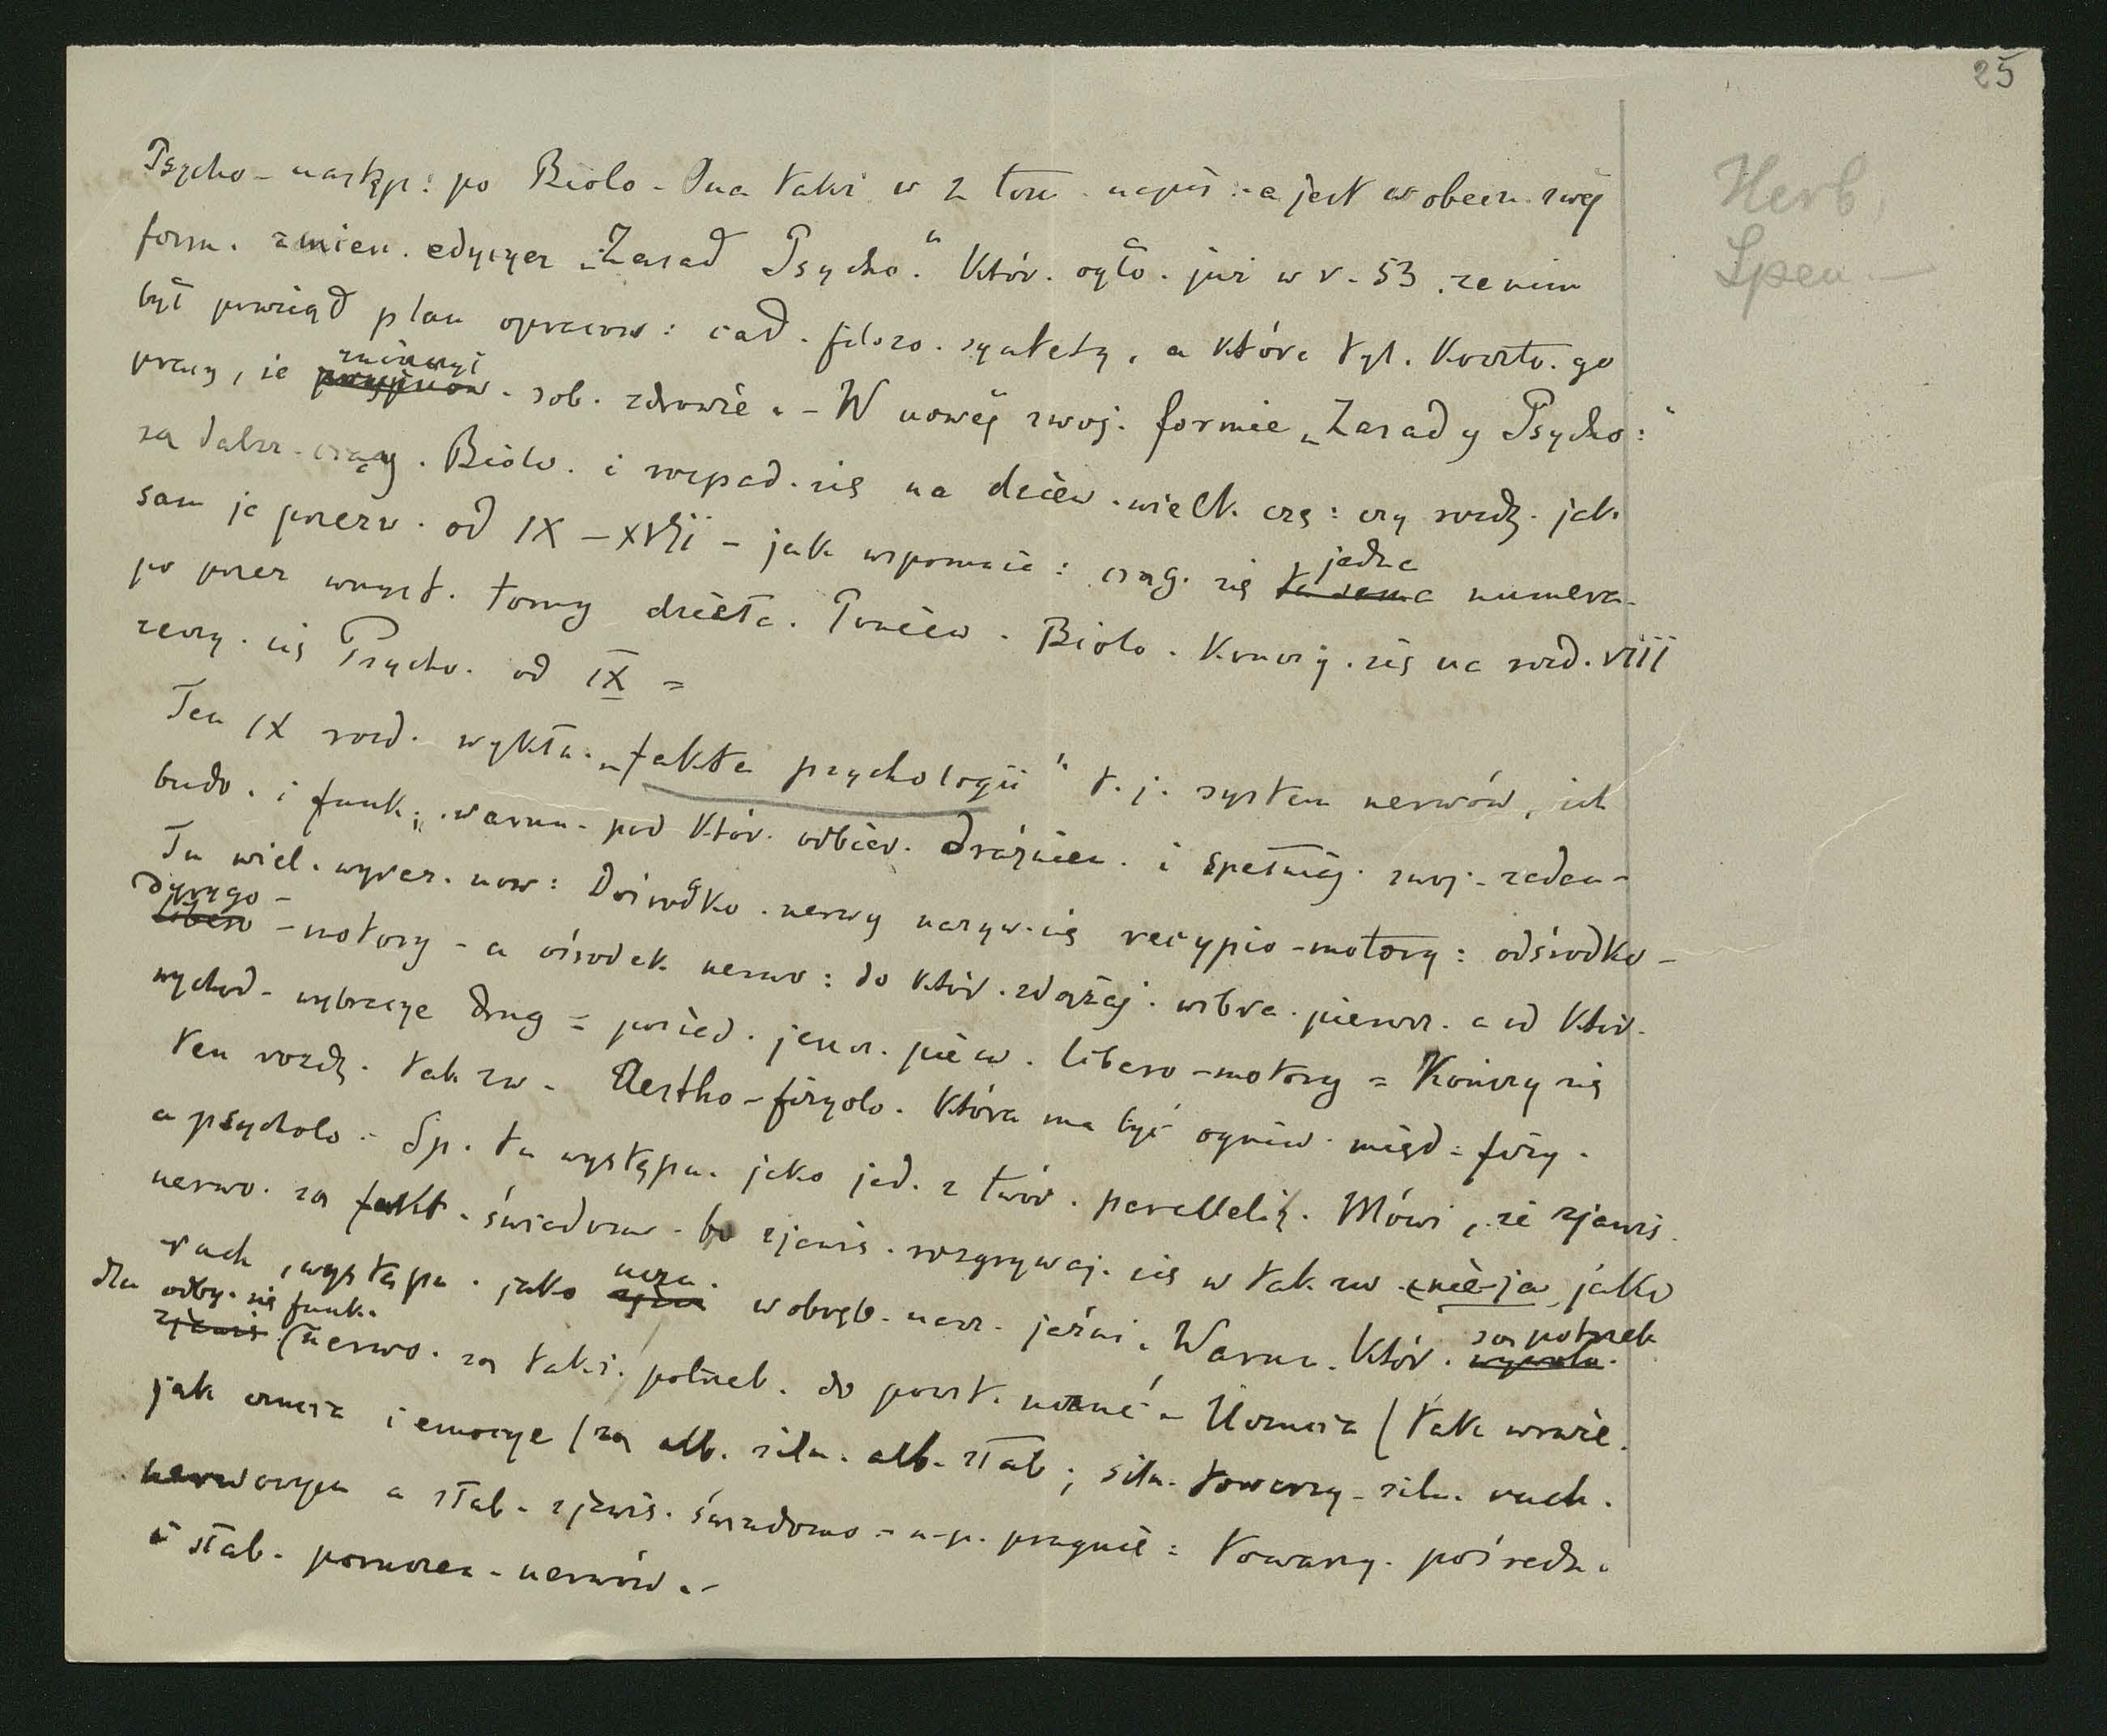 25
Herb.
Spen —
Psycho – następ: po Biolo – Ona także w 2 tom . napis :– a jest w obecn. swej
form. zmien. edycyą „Zasad Psycho." Któr. ogło. już w r. 53 . zanim
był powziął plan opracow: cał. filozo. syntety. , a które tyl. Koszto. go
pracy, że zniszczył sob. zdrowie . – W nowej swoj. formie „Zasady Psycho:"
są dalsz. ciąg . Biolo. i rozpad. się na dziew. wielk. czę: czy rozdz. jak
sam je przezw. od IX – XVII – jak wspomnia: ciąg. się ta sama jedna numera-
po przez wszyst. tomy dzieła. Poniew. Biolo. Kończ. się na rozd. VIII
zaczy. się Psycho. od IX =
Ten IX rozd. wykła. „fakta psychologii" t. j. system nerwów, ich
budo. i funk., warun. pod Któr. odbier. drażnien. i spełniaj. swoj. zadan–
Tu wiel. wyraz. now: Dośrodko. nerwy nazyw. się recypio-motory: odśrodko –
dyrygo – libero – motory – a ośrodek nerwo: do Któr. zdążaj. wibra. pierwsz. a od Któr.
wychod – wybracye drug = posiad. jeszcz. pierw. libero-motory = Kończy się
ten rozdz. tak zw – Aestho-fizyolo. Która ma być ogniw. międ: fizy.
a psycholo – Sp. tu występu. jako jed. z twór. parallelz. Mówi, że zjawis.
nerwo. są fakt. świadom – bo zjawis. rozgrywaj. się w tak zw. nie-ja jako
ruch, występu. jako ucza. w obręb. nasz. jaźni. Warun. Któr. są potrzeb
dla odby. się funk. zjawis (nerwo. są takż. potrzeb. do powst. uczuć – Uczucia (tak wraże.
jak czucia i emocye) są alb. siln. alb. słab; siln. towarzy – siln. ruch.
nerwowym a słab. zjawis. świadomo – n.p. pragnie: towarzy. pośredn.
i słab. porusze. nerwów . –